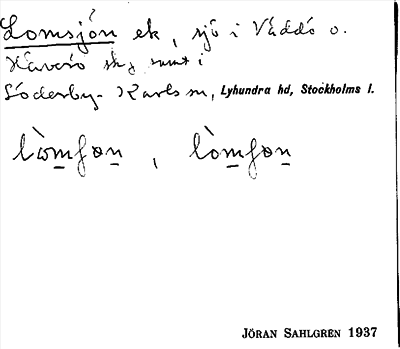 Lomsjön ek, sjö i Väddö o.
Häverö sk, samt i
Söderby-Karls sn, Lyhundra hd, Stockholms l.
lòmʃøn, lòmʃøn
JÖRAN SAHLGREN 1937